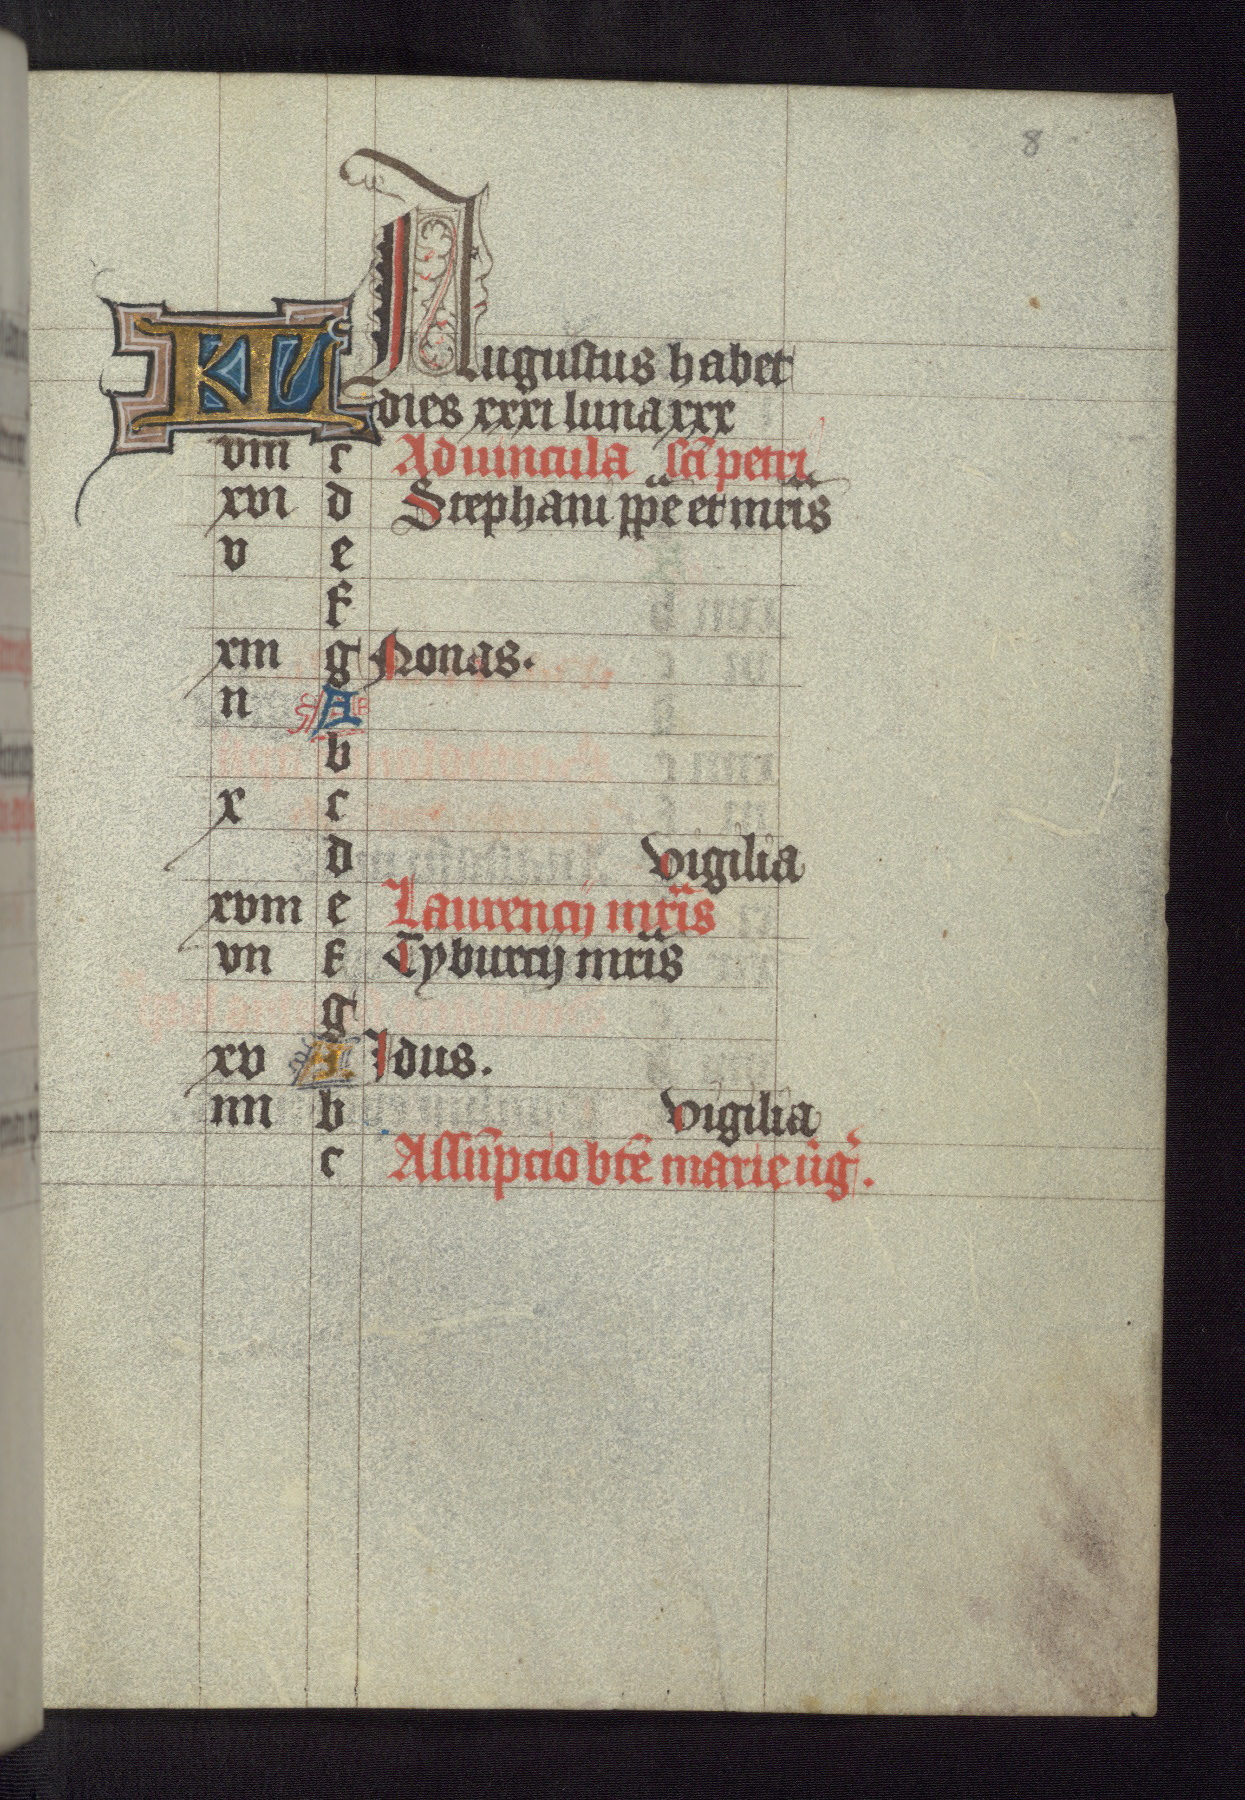 8
KL Augustus habet
dies xxxi luna xxx
viii c Ad uincula sci petri
xvi d Stephani ppe et mris
v e
f
xiii g Nonas.
ii A
b
x c
d vigilia
xviii e Laurencij mris
vii f Tyburcij mris
g
xv A Idus.
iiii b vigilia
c Assupcio bte marie uig.